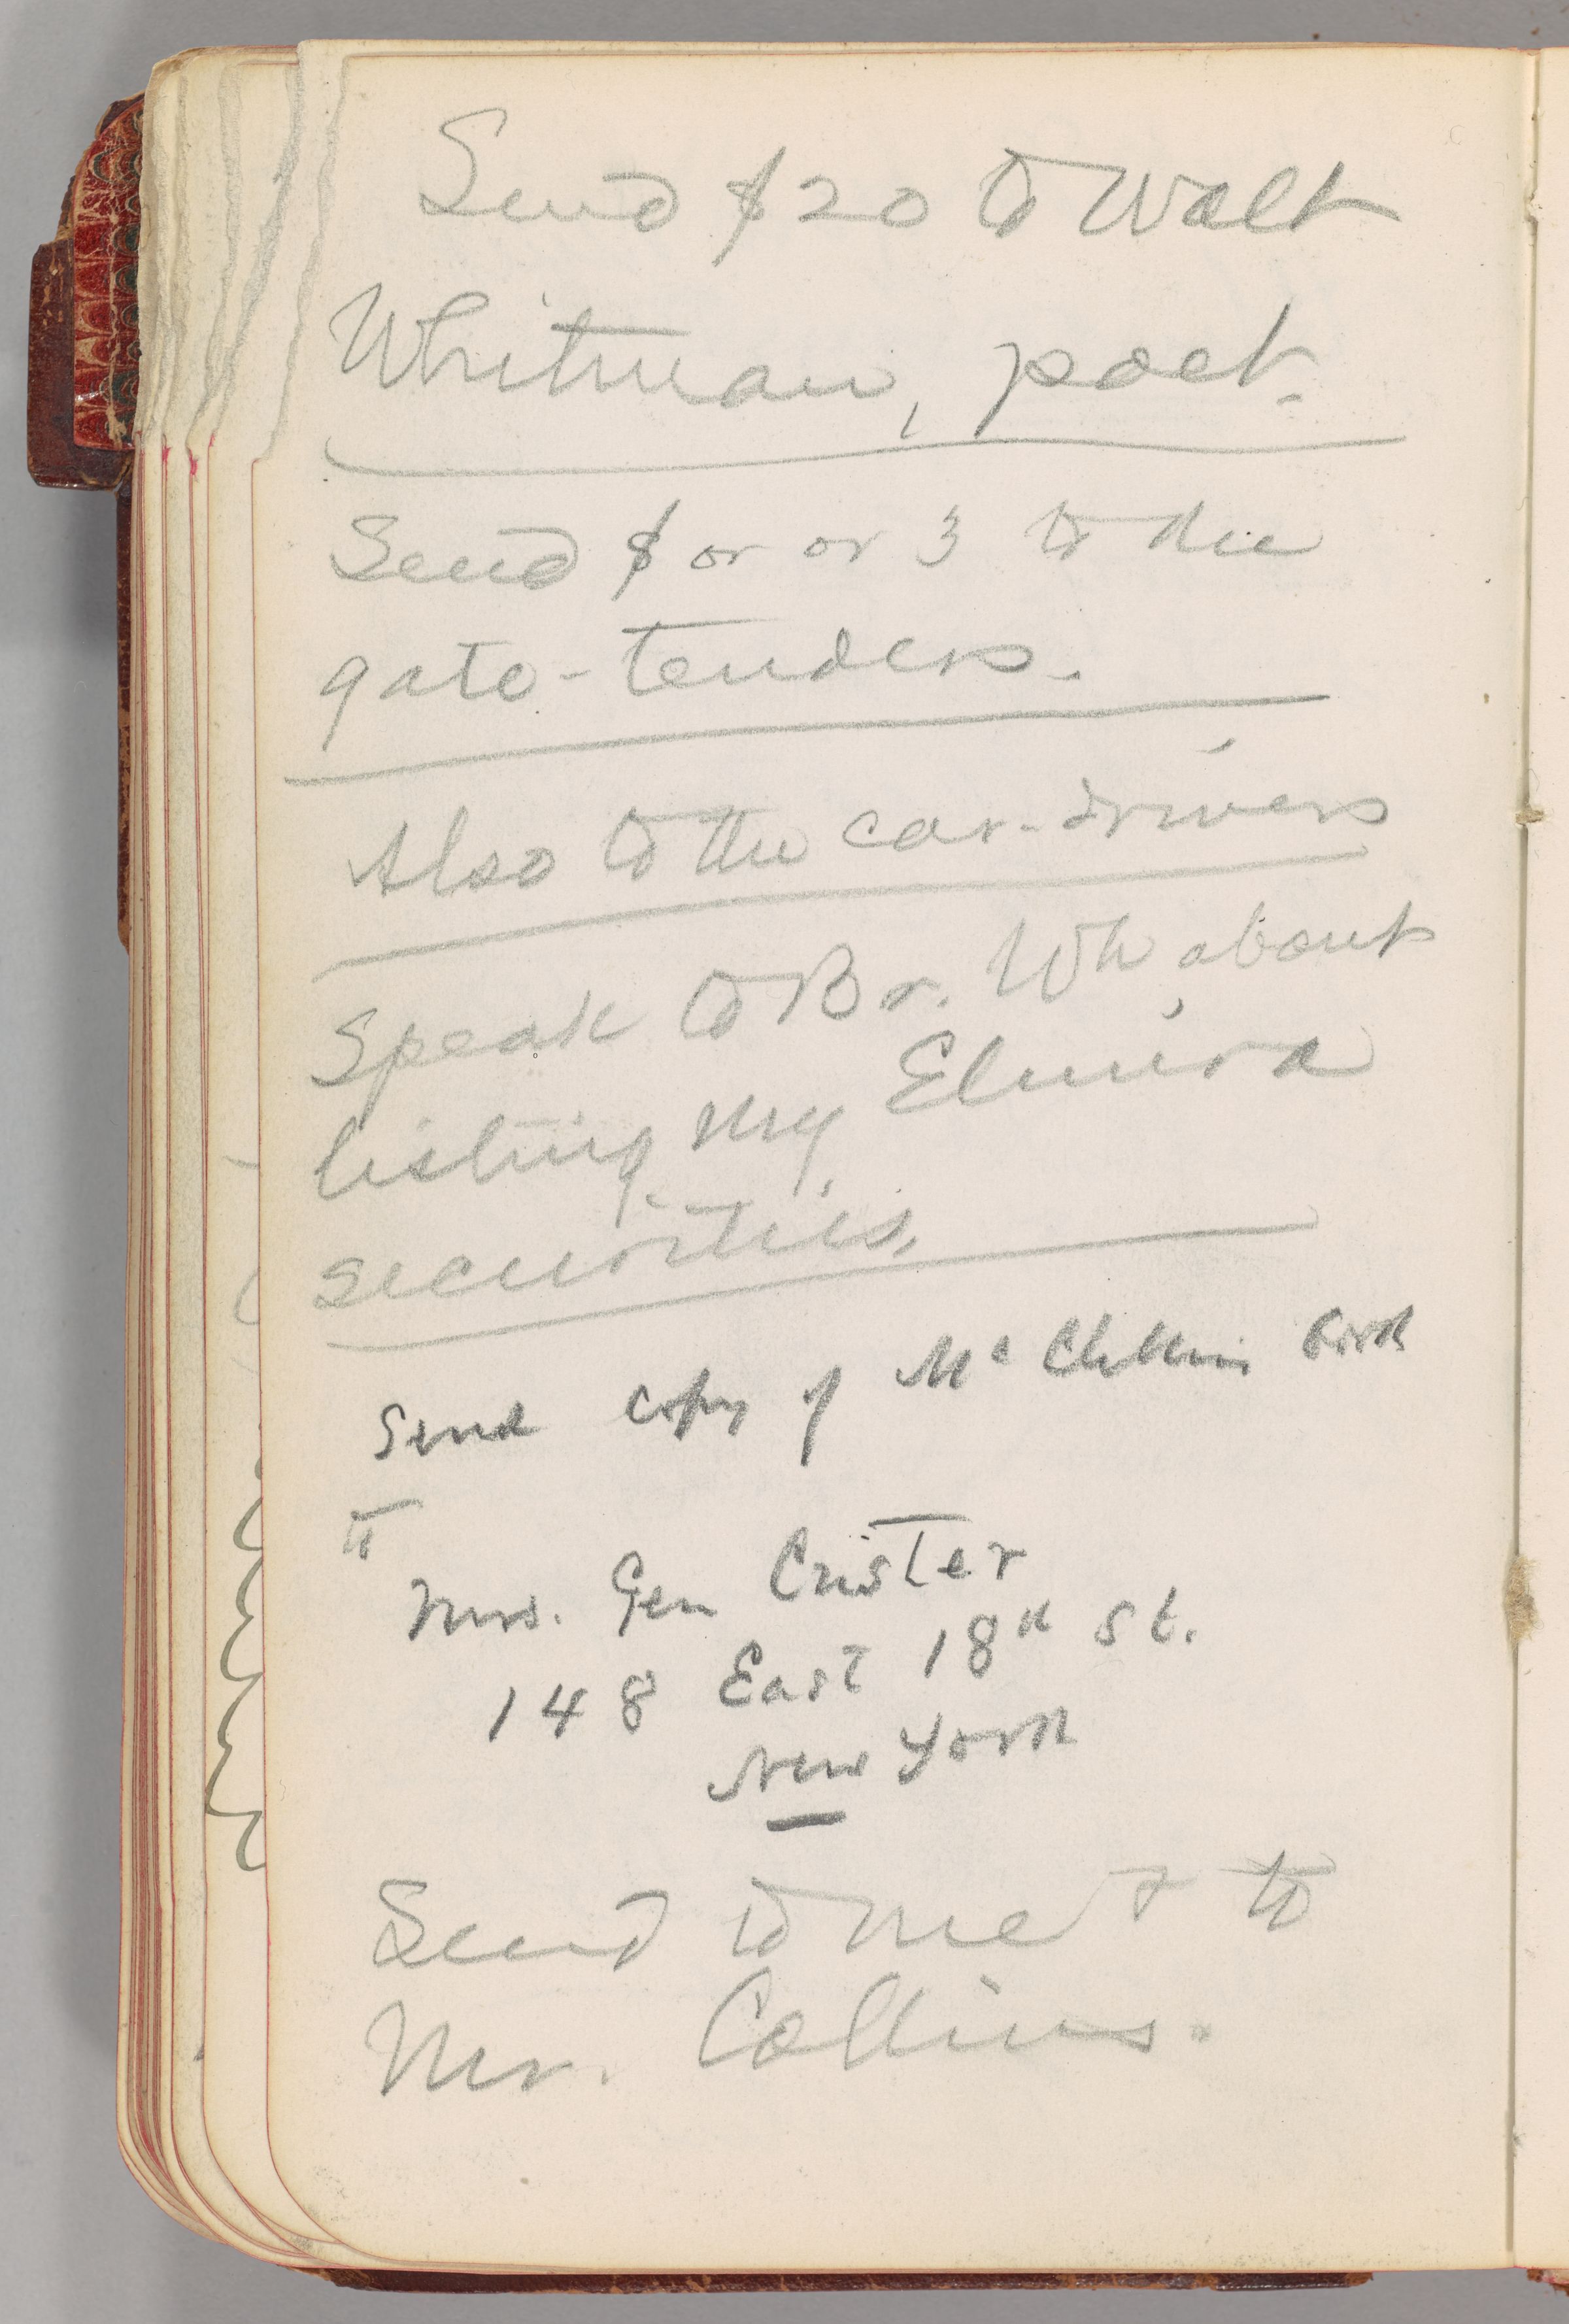 Send $20 to Walt
Whitman, poet.
Send $ or or 3 to the
gate-tenders.
Also to the car-drivers
Speak to Br. Wh, about
listing my Elmira
securities.
Send copy of McClellan Book
to
Mrs. Gen Custer
148 East 18th St.
New York
Send to me & to
Mr. Collins.